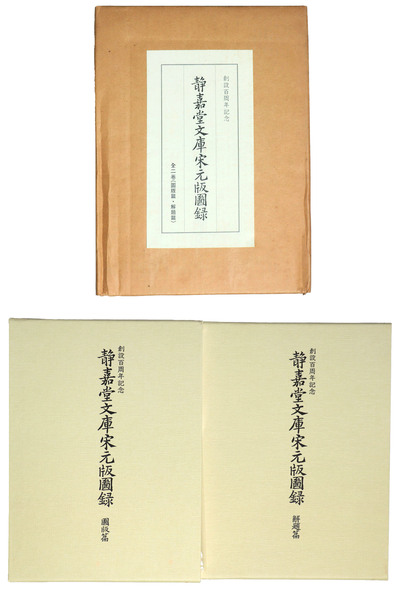 創設百周年記念
靜嘉堂文庫宋元版圖録
全二巻(圖版篇・解題篇)
創設百周年記念
靜嘉堂文庫宋元版圖録
圖版篇
創設百周年記念
靜嘉堂文庫宋元版圖録
解題篇